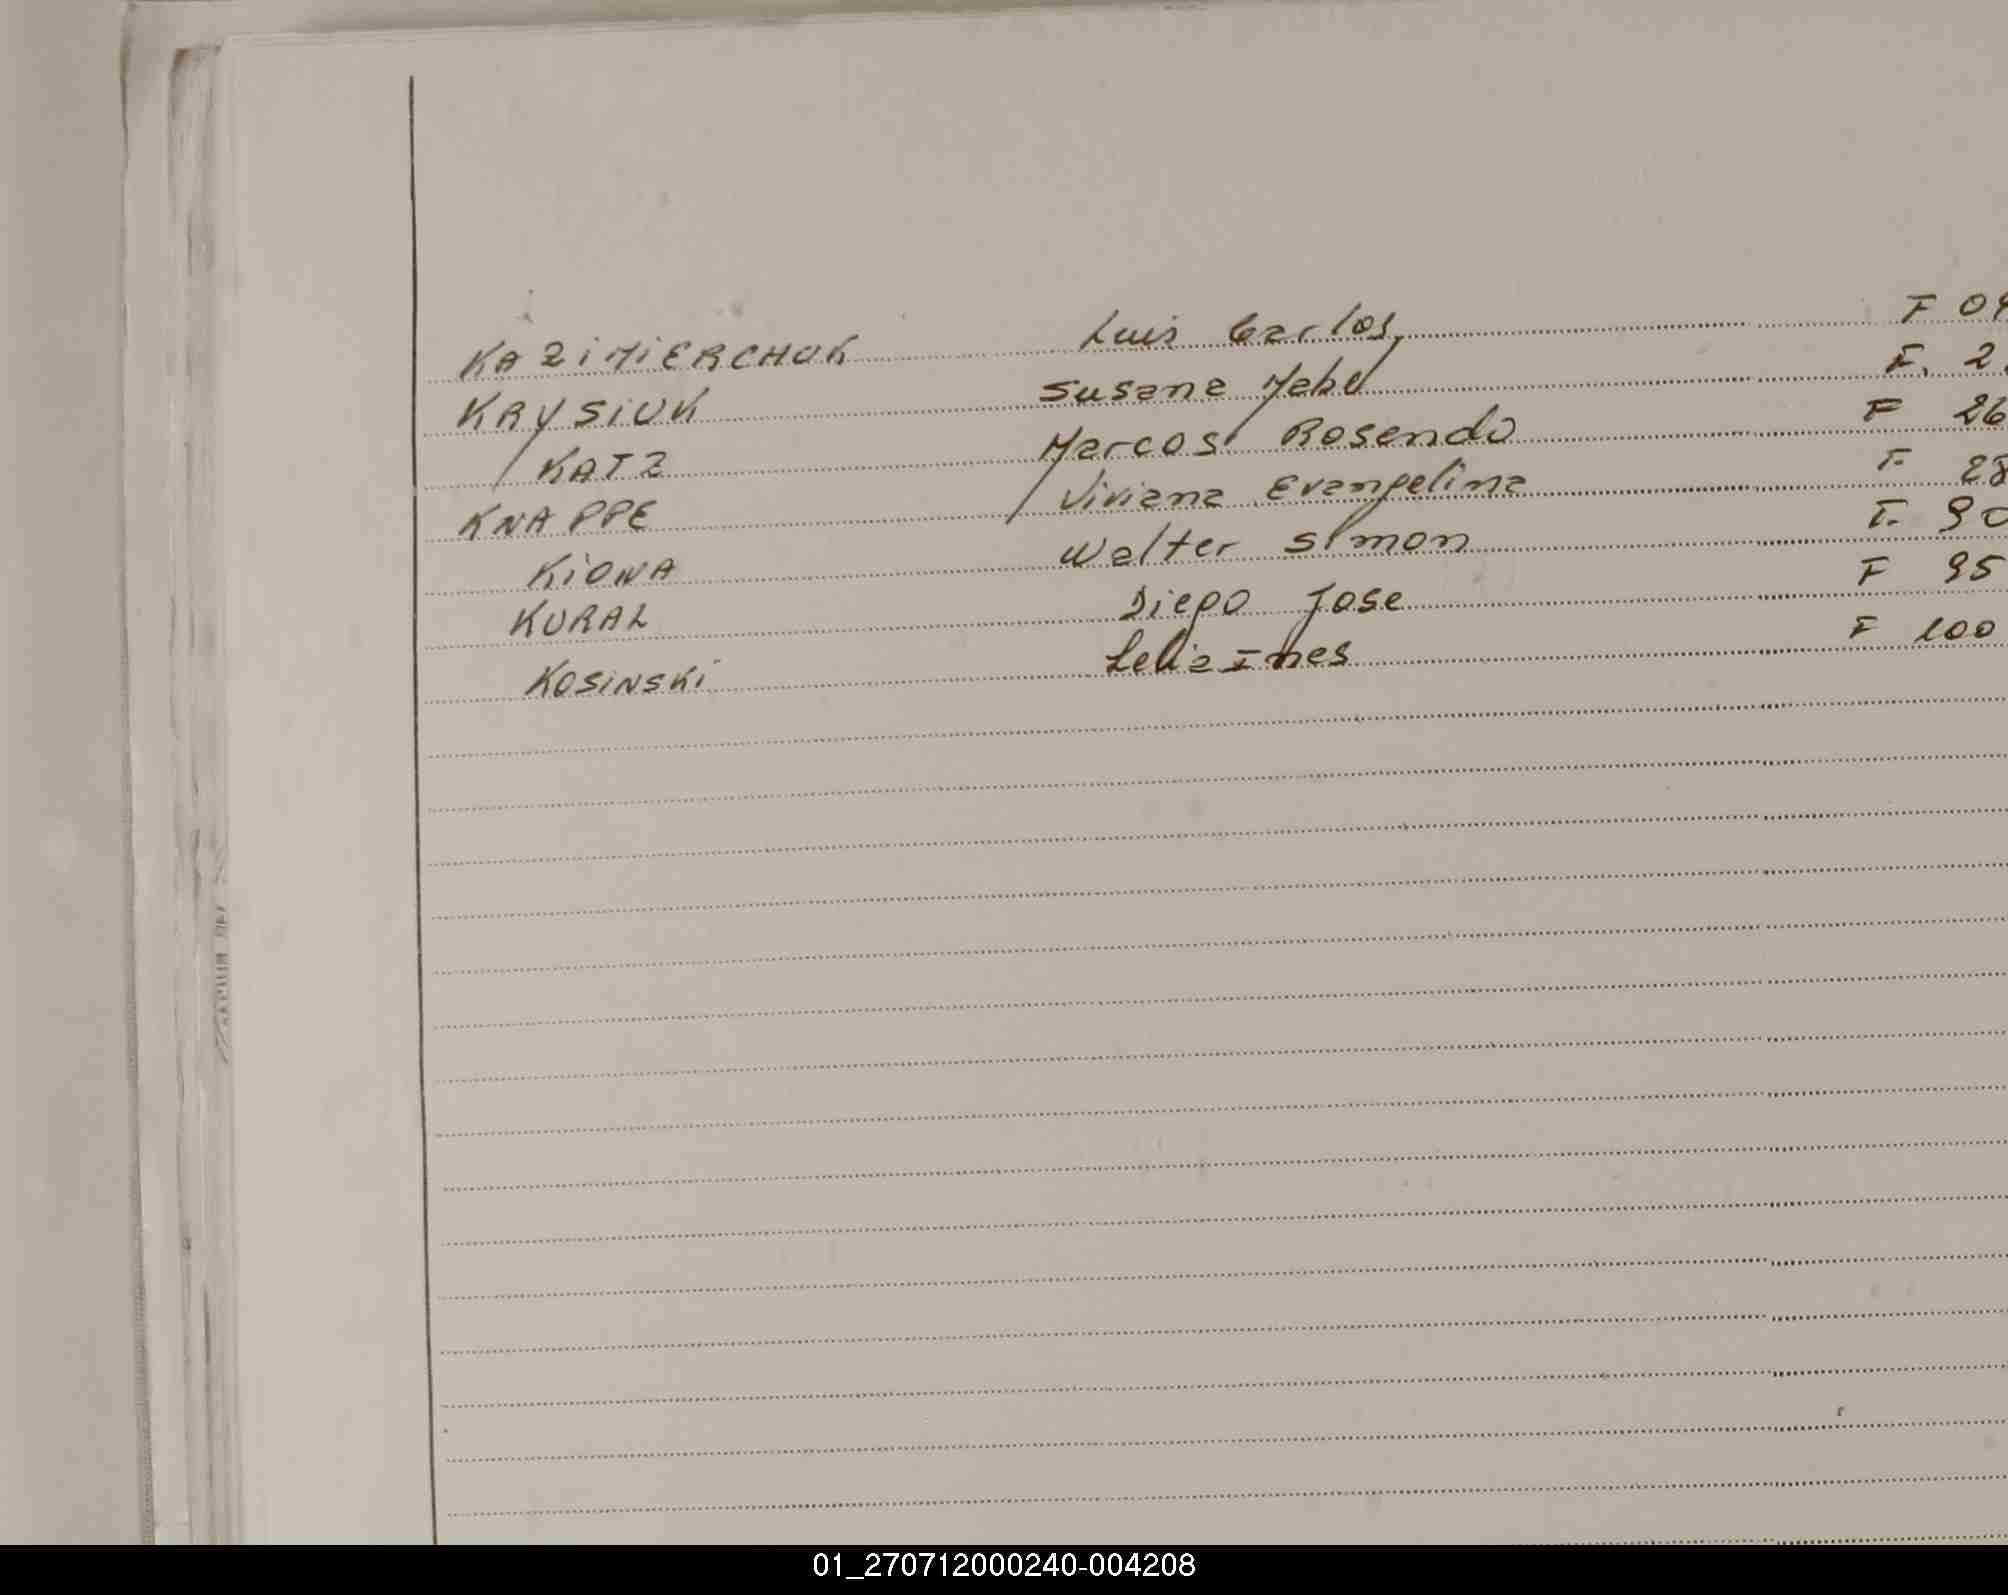 KAZiMiERCHUK Luis Carlos F 04
KRYSiUK Susana Mabel F. 2
KATZ Marcos Rosendo F 26
KNAPPE Viviana Evangelina F. 28
KiONA Walter Simon F. 90
KURAL Diego Jose F 95
KOSiNSKi Lelia Ines F 100
01_270712000240-004208